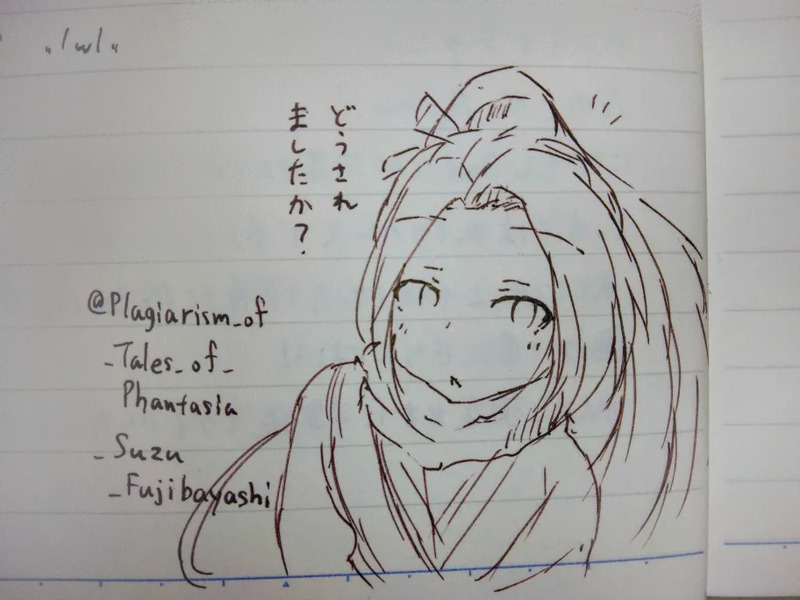 „lwl„
どうされ
ましたか？
@Plagiarism_of
_Tales_of_
Phantasia
_Suzu
_Fujibayashi